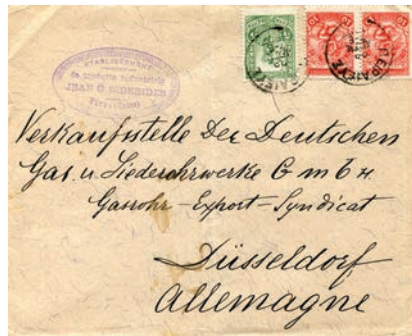 ETABLISSEMENT
JEAN G. SIDERIDES
Verkaufsstelle Der Deutschen
Gas. u. Siederohrwerke G m b H
Gasrohr - Export - Syndicat
Düsseldorf
Allemagne